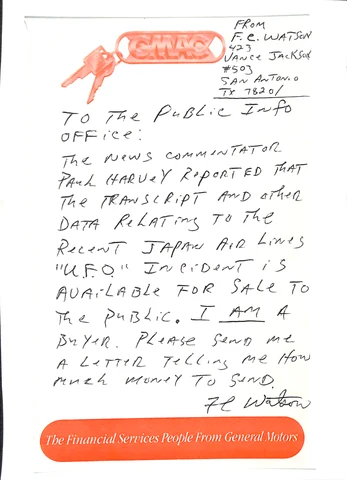 GMAC
FROM
F. C. WATSON
423
VANCE JACKSON
#503
SAN ANTONIO
TX 78201
TO THE PUBLIC INFO
OFFICE:
THE NEWS COMMENTATOR
PAUL HARVEY REPORTED THAT
THE TRANSCRIPT AND OTHER
DATA RELATING TO THE
RECENT JAPAN AIR LINES
"U.F.O." INCIDENT IS
AVAILABLE FOR SALE TO
THE PUBLIC. I AM A
BUYER. PLEASE SEND ME
A LETTER TELLING ME HOW
MUCH MONEY TO SEND.
FC Watson
The Financial Services People From General Motors